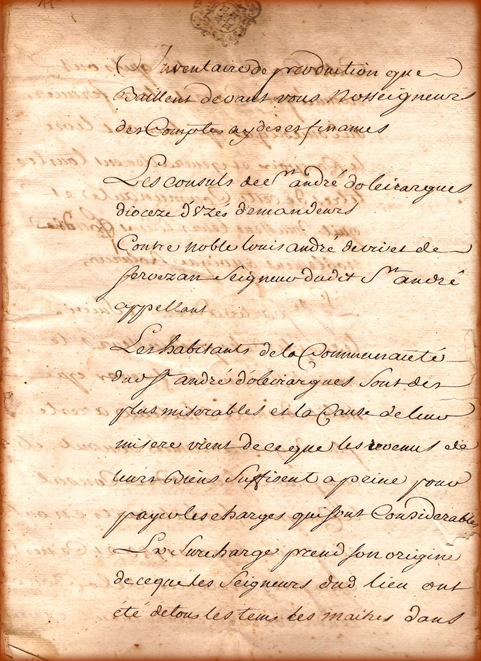 Inventaire de production que
Baillent devant vous Nosseigneurs
des Comptes aydes et finances
Les consuls de St andré doleirargues
dioceze d'uzés demandeurs
Contre noble louis andré de vivet de
servezan Seigneur dudit St andré
appellant
Les habitants de la Communauté
du St andré doleirargues sont des
plus miserables et la Cause de leur
misere vient de ce que les revenus de
leurs Biens suffisent a peine pour
payer les charges qui sont Considerables
La Surcharge prend son origine
de ce que les Seigneurs dud lieu ont
été de tous les tems les maitres dans